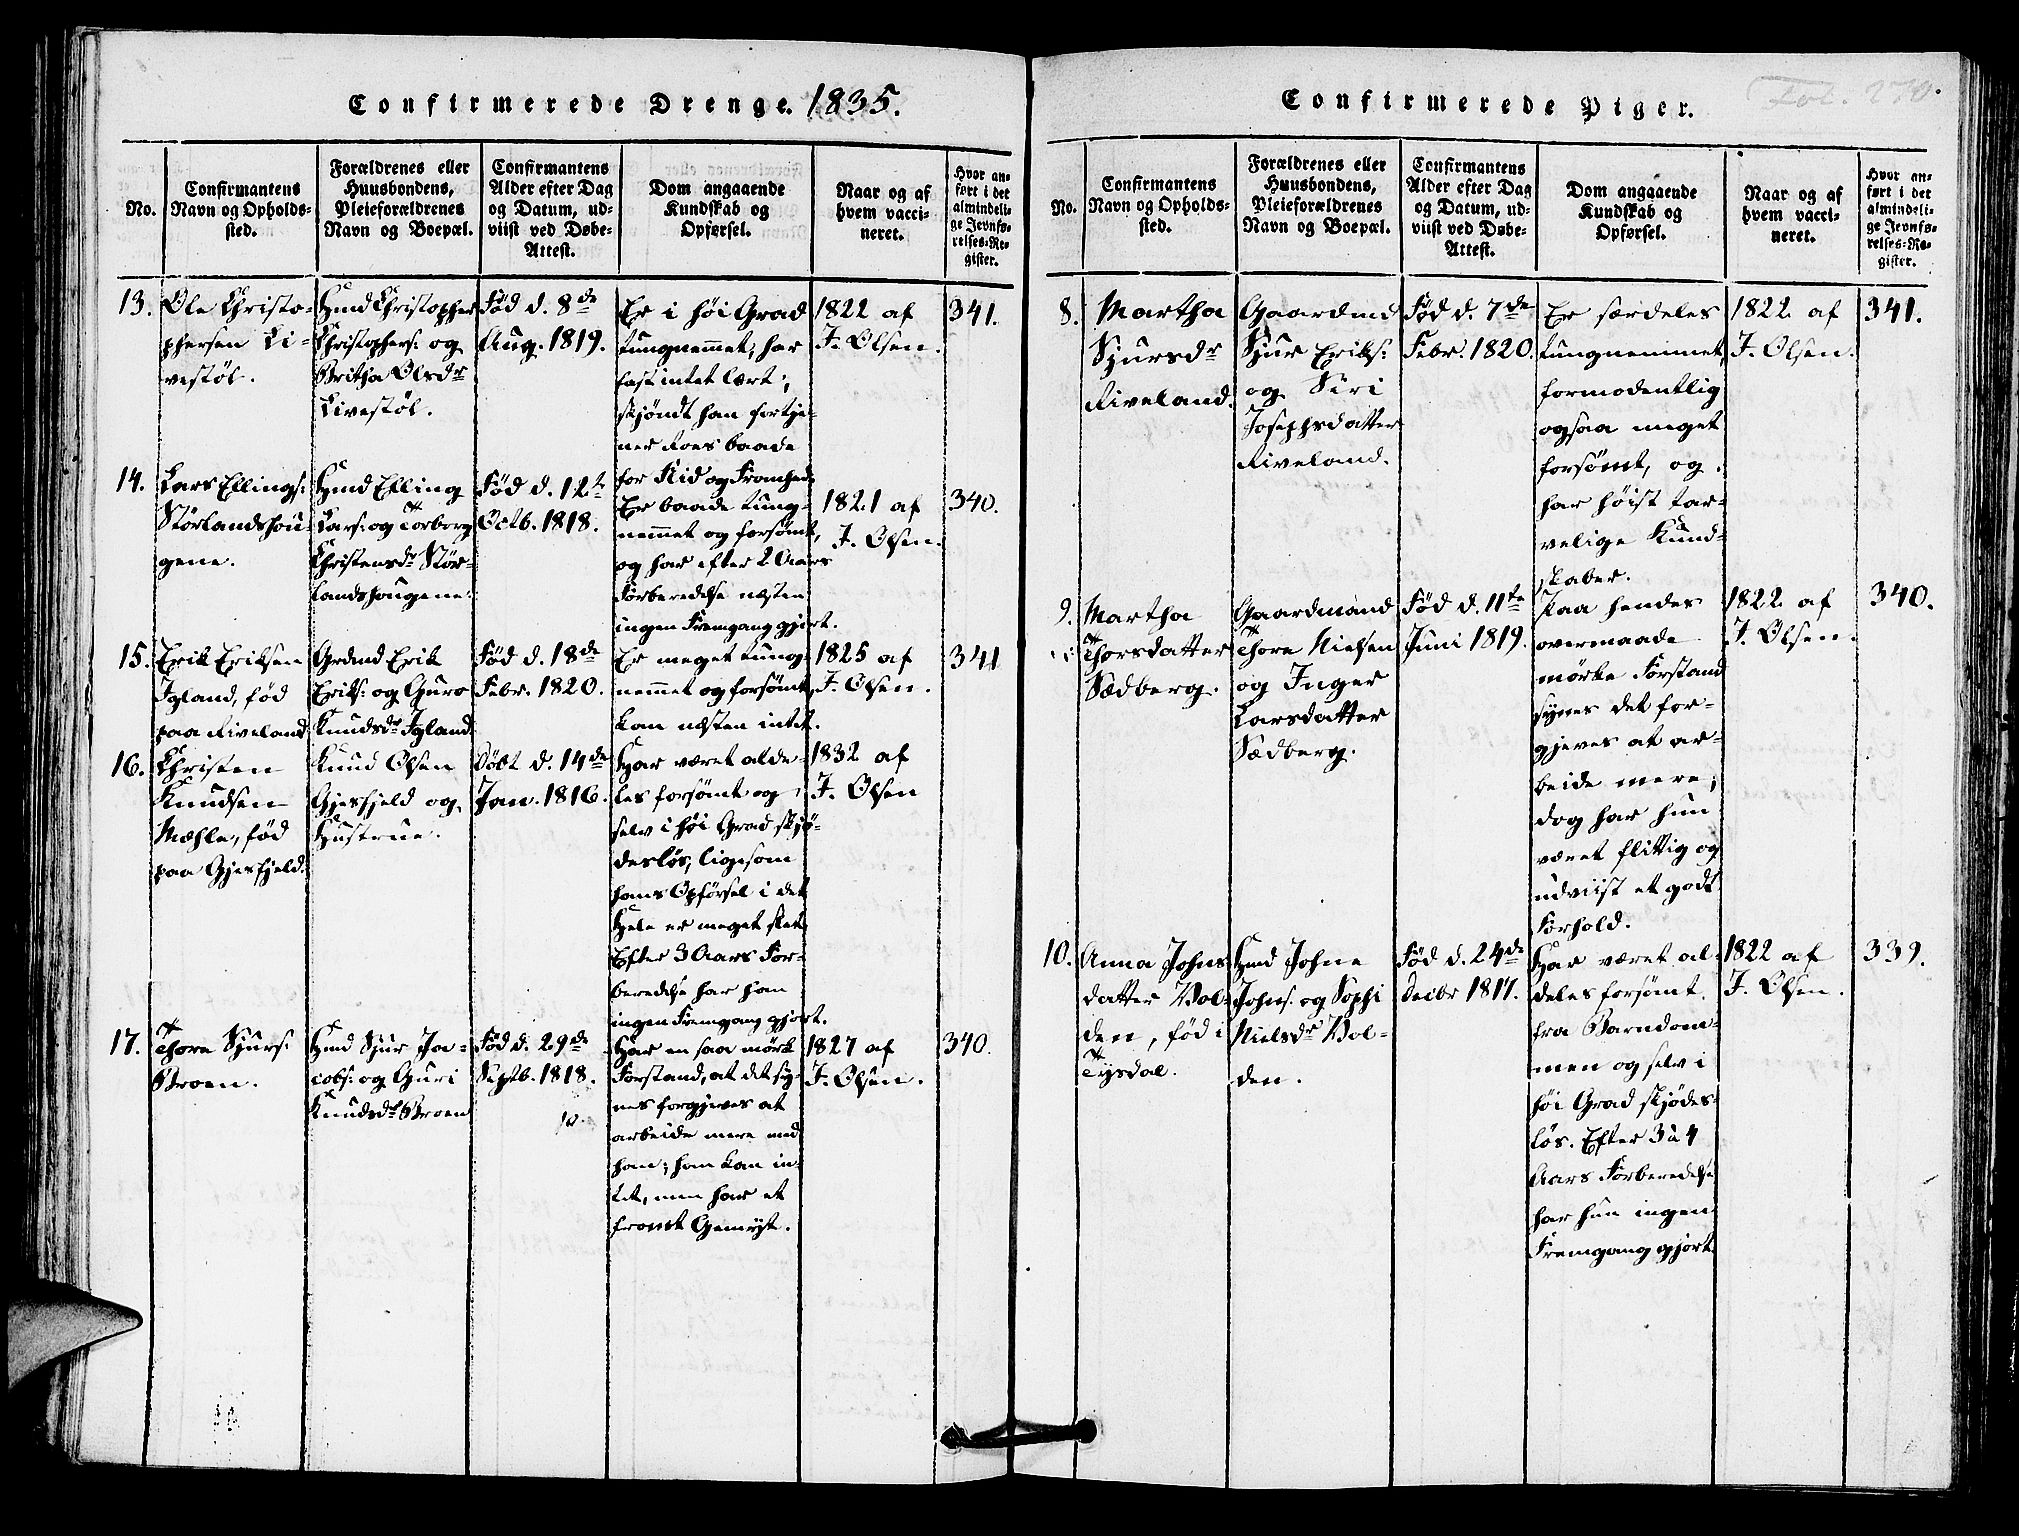 Confirmerede Drenge. 1835.
No.
Confirmantens
Navn og Opholds-
sted.
Forældrenes eller
Huusbondens,
Pleieforældrenes
Navn og Boepæl.
Confirmantens
Alder efter Dag
og Datum, ud-
viist ved Døbe-
Attest.
Dom angaaende
Kundskab og
Opførsel.
Naar og af
hvem vacci-
neret.
Hvor an-
ført i det
almindeli-
ge Jevnfø-
relses-Re-
gister.
13.
Ole Christo-
phersen Li-
vestøl.
Hmd Christopher
Christophers: og
Britha Olsdr
Livestøl.
Fød d. 8de
Aug. 1819.
Er i høi Grad
tungnemmet; har
fast intet lært;
skjøndt han fortje-
ner Roes baade
for Flid og Fromhed.
1822 af
J. Olsen.
341.
14.
Lars Ellings:
Størlandshou-
gene.
Hmd Elling
Lars: og Torborg
Christensdr Stør-
landshougene.
Fød d. 12te
Octb. 1818.
Er baade tung-
nemmet og forsømt,
og har efter 2 Aars
Forberedelse næsten
ingen Fremgang gjort.
1821 af
J. Olsen.
340.
15.
Erik Eriksen
Igland, fød
paa Riveland
Grdmd Erik
Eriks: og Guro
Knudsdr Igland
Fød d. 18de
Febr. 1820.
Er meget tung-
nemmet og forsømt,
kan næsten intet.
1825 af
J. Olsen.
341
16.
Christen
Knudsen
Mæhle, fød
paa Gjesfjeld.
Knud Olsen
Gjesfjeld og
Hustrue.
Døbt d. 14de
Jan. 1816.
Har været alde-
les forsømt og
selv i høi Grad skjø-
desløs, ligesom
hans Opførsel i det
Hele er meget slet.
Efter 3 Aars For-
beredelse har han
ingen Fremgang gjort.
1832 af
J. Olsen
17.
Thore Sjurs:
Broen.
Hmd Sjur Ja-
cobs: og Guri
Knudsdr Broen
Fød d. 29de
Septb. 1818.
Har en saa mørk
Forstand, at det sy-
nes forgjeves at
arbeide mere med
ham; han kan in-
tet, men har et
fromt Gemyt.
1827 af
J. Olsen.
340.
Confirmerede Piger.
Fol. 270.
No.
Confirmantens
Navn og Opholds-
sted.
Forældrenes eller
Huusbondens,
Pleieforældrenes
Navn og Boepæl.
Confirmantens
Alder efter Dag
og Datum, ud-
viist ved Døbe-
Attest.
Dom angaaende
Kundskab og
Opførsel.
Naar og af
hvem vacci-
neret.
Hvor an-
ført i det
almindeli-
ge Jevnfø-
relses-Re-
gister.
8.
Martha
Sjursdr
Riveland.
Gaardmd
Sjur Eriks:
og Siri
Josephsdatter
Riveland.
Fød d. 7de
Febr. 1820.
Er særdeles
tungnemmet,
formodentlig
ogsaa meget
forsømt, og
har høist tar-
velige Kund-
skaber.
1822 af
J. Olsen.
341.
9.
Martha
Thorsdatter
Sædberg.
Gaardmand
Thore Nielsen
og Inger
Larsdatter
Sædberg.
Fød d. 11te
Juni 1819.
Paa hendes
overmaade
mørke Forstand
synes det for-
gjeves at ar-
beide mere;
dog har hun
været flittig og
udviist et godt
Forhold.
1822 af
J. Olsen.
340.
10.
Anna Johns-
datter Vol-
den, fød i
Tysdal.
Hmd Johne
Johns: og Sophi
Nielsdr Vol-
den.
Fød d. 24de
Decbr 1817.
Har været al-
deles forsømt
fra Barndom-
men og selv i
høi Grad skjødes-
løs. Efter 3 a 4
Aars Forberedelse
har hun ingen
Fremgang gjort.
1822 af
J. Olsen.
339.